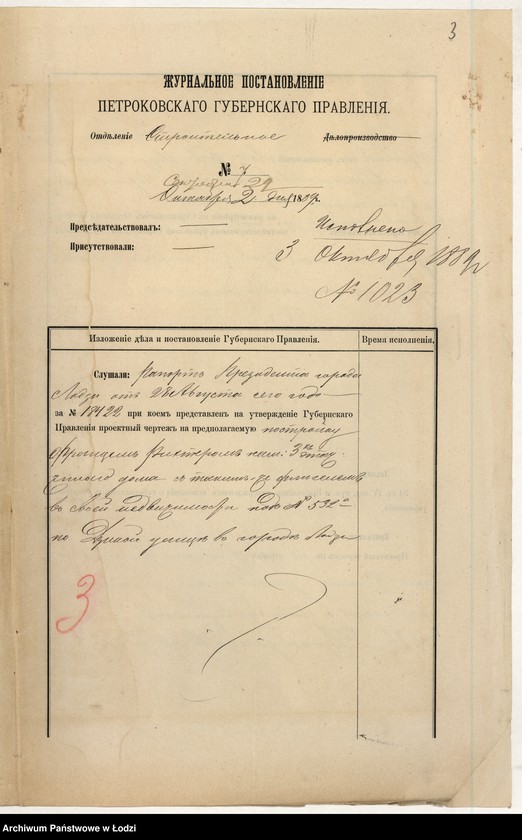 3
ЖУРНАЛЬНОЕ ПОСТАНОВЛЕНІЕ
ПЕТРОКОВСКАГО ГУБЕРНСКАГО ПРАВЛЕНІЯ.
Отдѣленіе Строительное Дѣлопроизводство
№ 7
29
Октября 2 дня 1889 г.
Предсѣдательствовалъ:
Присутствовали:
Исполнено
3 Октября 1889 г
№ 1023
Изложеніе дѣла и постановленіе Губернскаго Правленія.
Время исполненія.
Слушали: Рапортъ Президента города
Лодзи отъ 28 Августа сего года
за № 18422 при коемъ представленъ на утвержденіе Губернскаго
Правленія проектный чертежъ на предполагаемую постройку
кам: 3хъ этаж
наго дома съ таким же флигелемъ
въ своей недвижимости подъ № 532
по улицѣ въ городѣ Лодзи
3
Archiwum Państwowe w Łodzi